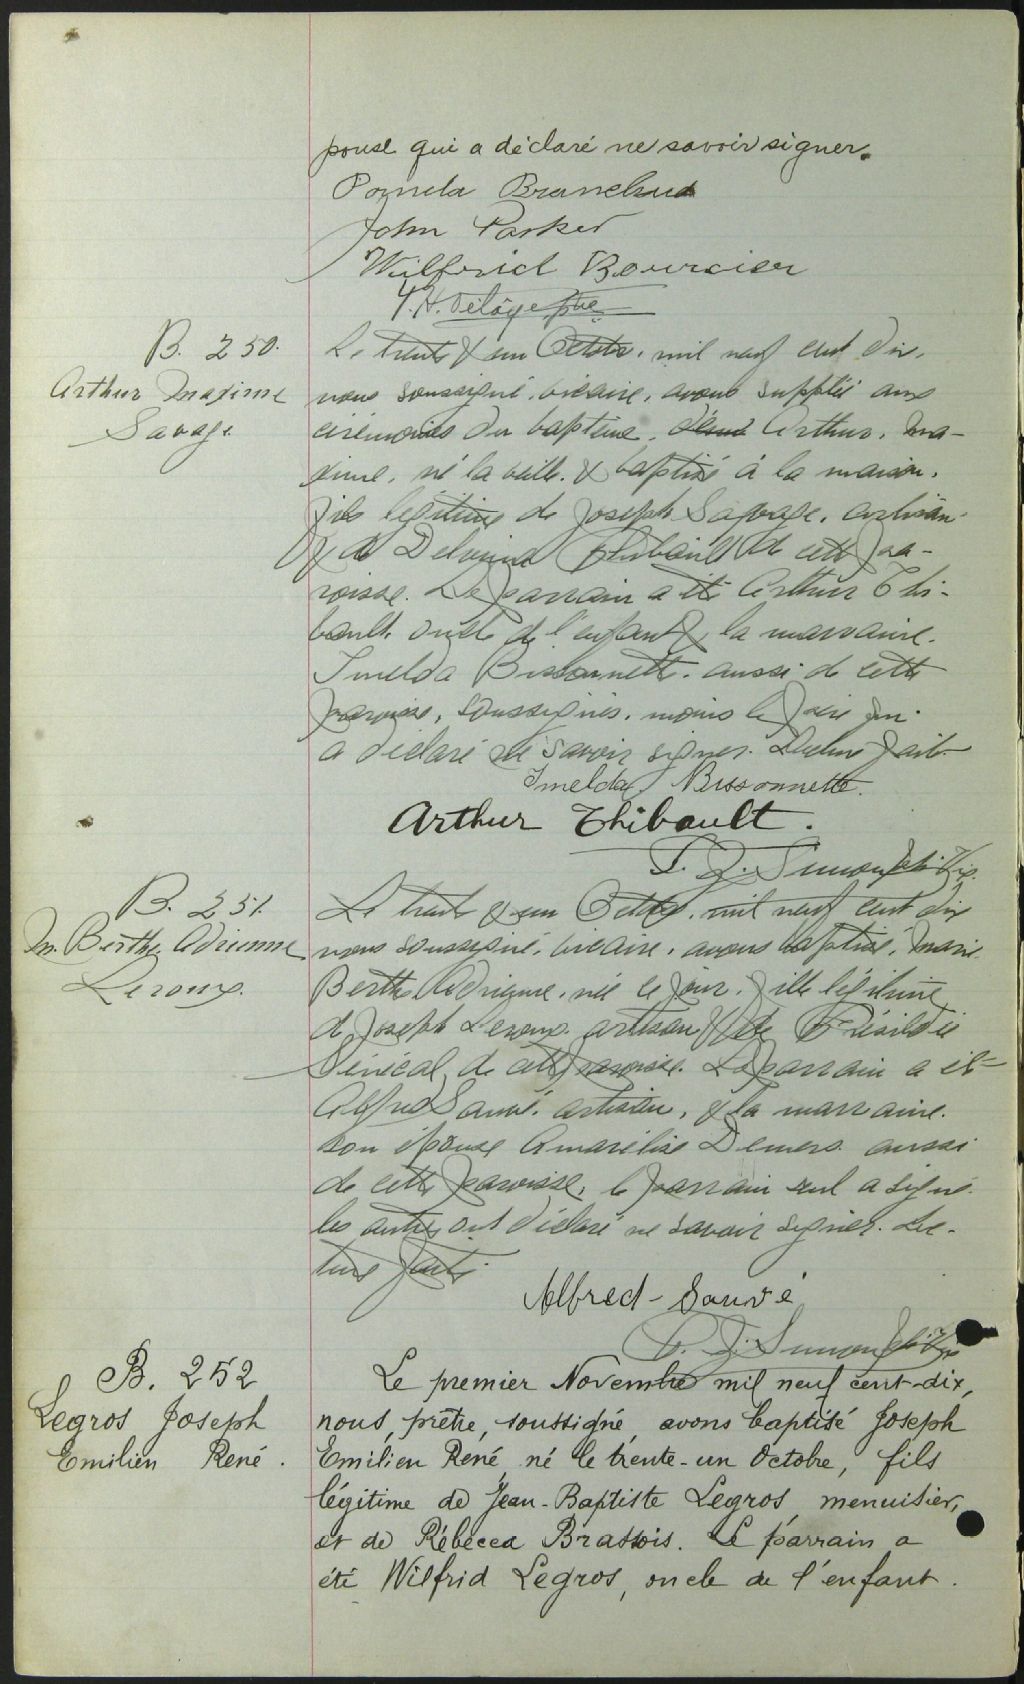 pouse qui a déclaré ne savoir signer.
Pomela Branchud
John Parker
Wilfrid Bourcier
B. 250.
Arthur Maxime
Savage
Le trente & un Octobre, mil neuf cent dix,
nous soussigné, vicaire, avons supplée aux
cérémonies du baptême, Arthur, Ma-
xime, né la veille & baptisé à la maison,
fils légitime de Joseph Savage, artisan
& de Delvina Thibault de cette pa-
roisse. Le parrain a été Arthur Thi-
bault oncle de l'enfant & la marraine
Imelda Bissonnette aussi de cette
paroisse, soussignés, moins le père qui
a déclaré ne savoir signer. Lecture faite
Imelda Bissonnette.
Arthur Thibault.
B. 251.
M. Berthe Adrienne
Leroux.
Le trente & un Octobre, mil neuf cent dix
nous soussigné, vicaire, avons baptisé, Marie
Berthe Adrienne, née ce jour, fille légitime
de Joseph Leroux artisan & de
Sénécal de cette paroisse. Le parrain a été
Alfred Sauvé, artisan, & la marraine
son épouse Amarélise Demers aussi
de cette paroisse, le parrain seul a signé
les autres ont déclaré ne savoir signer. Lec-
ture faite.
Alfred Sauvé
B. 252
Legros Joseph
Emilien René.
Le premier Novembre mil neuf cent-dix,
nous, prêtre, soussigné, avons baptisé Joseph
Emilien René, né le trente-un Octobre, fils
légitime de Jean-Baptiste Legros menuisier,
et de Rébecca Brassois. Le parrain a
été Wilfrid Legros, oncle de l'enfant.